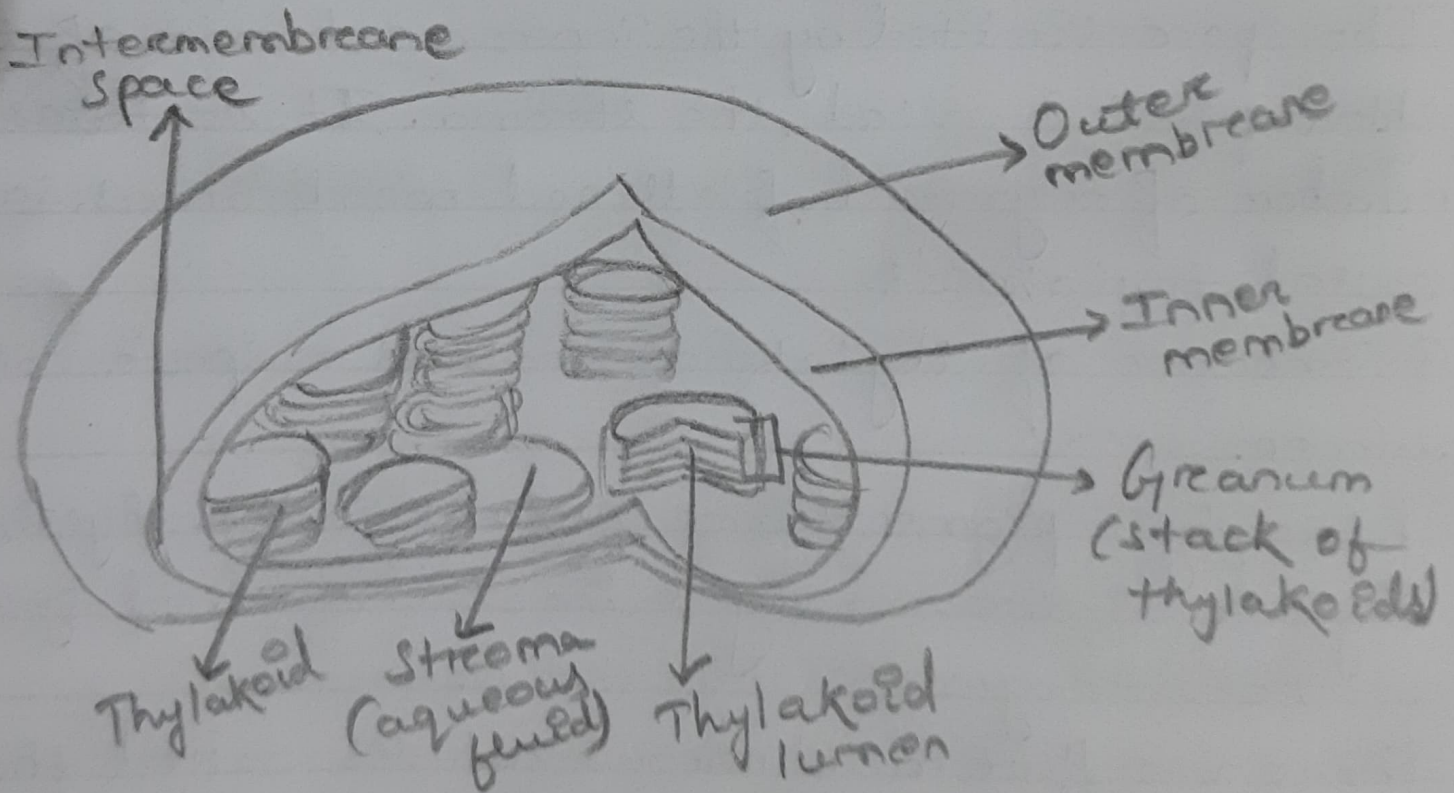 Intermembreane
space
Outer
membreane
Inner
membreane
Greanum
(stack of
thylakoids)
Thylakoid
Streoma
(aqueous
fluid)
Thylakoid
lumen